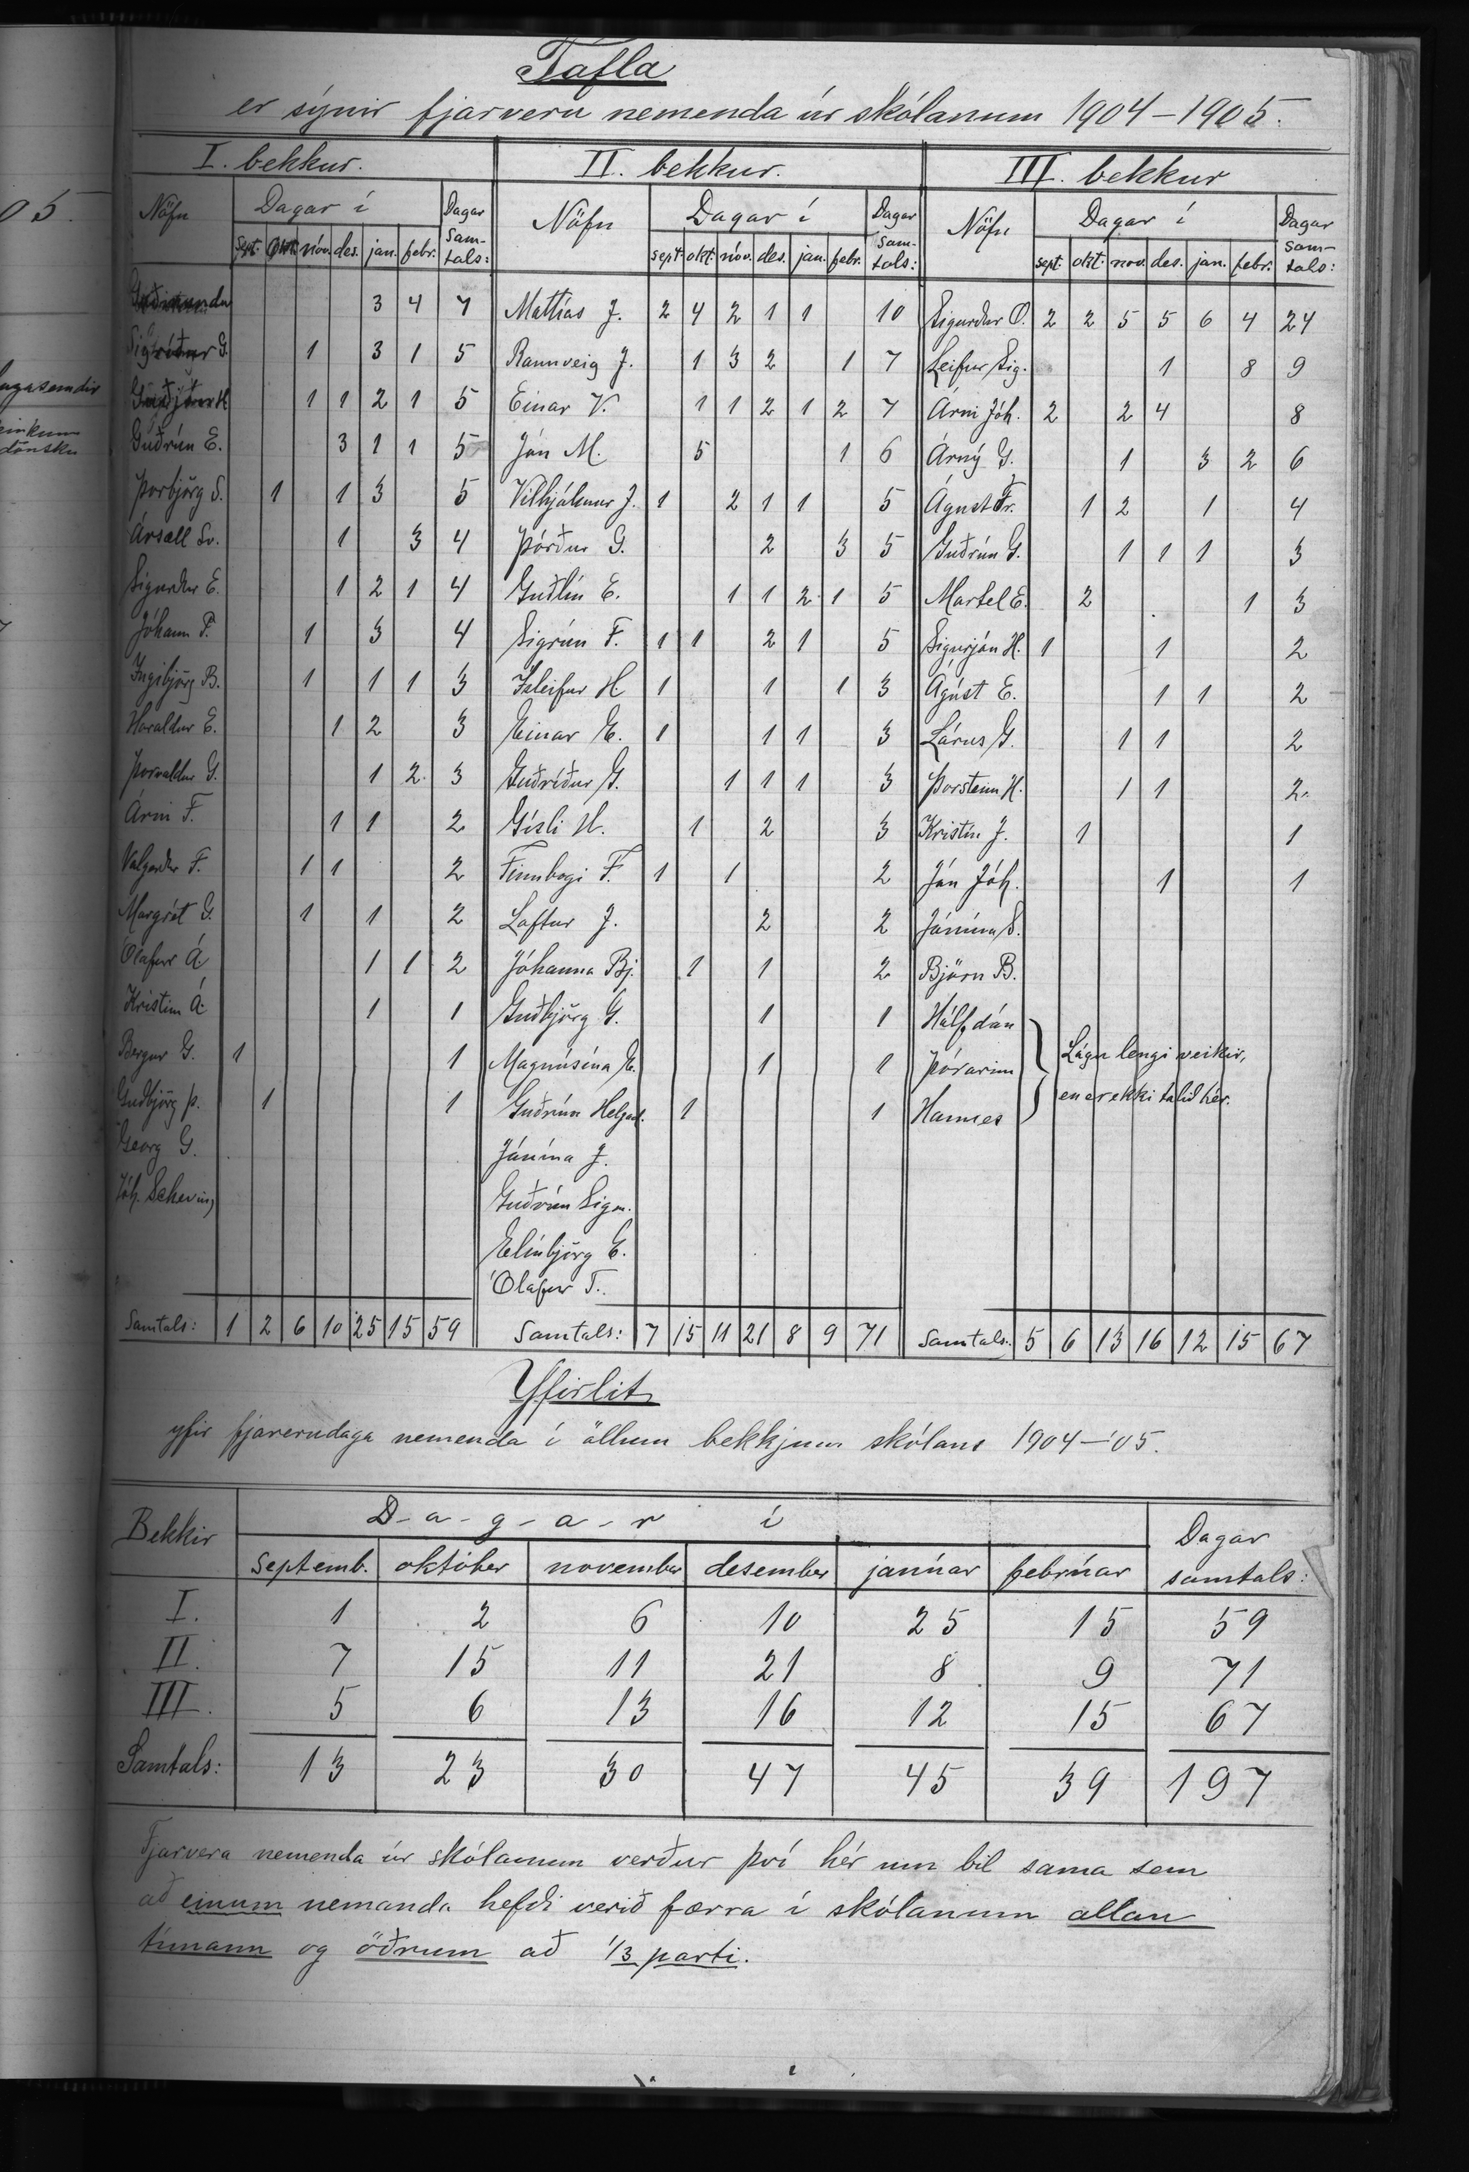 05.
Tafla
er sýnir fjarveru nemenda úr skólanum 1904–1905.
I. bekkur. II. bekkur. III. bekkur
Nöfn Dagar í Dagar samtals: Nöfn Dagar í Dagar samtals: Nöfn Dagar í Dagar samtals:
sept. okt. nóv. des. jan. febr. sept. okt. nóv. des. jan. febr. sept. okt. nov. des. jan. febr.
3 4 7 Mattías J. 2 4 2 1 1 10 Sigurður O. 2 2 5 5 6 4 24
Sigríður G. 1 3 1 5 Rannveig J. 1 3 2 1 7 Leifur Sig. 1 8 9
Guðjón H 1 1 2 1 5 Einar V. 1 1 2 1 2 7 Árni Jóh. 2 2 4 8
Guðrún E. 3 1 1 5 Jón M. 5 1 6 Árný G. 1 3 2 6
Þorbjörg S. 1 1 3 5 Vilhjálmur J. 1 2 1 1 5 Ágúst Fr. 1 2 1 4
Ársæll Sv. 1 3 4 Þórður G. 2 3 5 Guðrún G. 1 1 1 3
Sigurður E. 1 2 1 4 Guðlín E. 1 1 2 1 5 Martel E. 2 1 3
Jóhann P. 1 3 4 Sigrún F. 1 1 2 1 5 Sigurjón H. 1 1 2
Ingibjörg B. 1 1 1 3 Ísleifur H 1 1 1 3 Ágúst E. 1 1 2
Haraldur E. 1 2 3 Einar E. 1 1 1 3 Lárus G. 1 1 2
Þorvaldur G. 1 2 3 Guðríður G. 1 1 1 3 Þorsteinn H. 1 1 2
Árni F. 1 1 2 Gísli H. 1 2 3 Kristín J. 1 1
Valgerður F. 1 1 2 Finnbogi F. 1 1 2 Jón Jóh. 1 1
Margrét G. 1 1 2 Loftur J. 2 2 Jónína S.
Ólafur Á 1 1 2 Jóhanna Bj. 1 1 2 Björn B.
Kristinn Á 1 1 Guðbjörg G. 1 1 Hálfdán
Bergur G. 1 1 Magnúsína E. 1 1 Þórarinn Lágu lengi veikir,
Guðbjörg Þ. 1 1 Guðrún Helgad. 1 1 Hannes en er ekki talið hér.
Georg G. Jónína J.
Jóh. Scheving Guðrún Sigm.
Elínbjörg E.
Ólafur T.
Samtals: 1 2 6 10 25 15 59 Samtals: 7 15 11 21 8 9 71 Samtals: 5 6 13 16 12 15 67
Yfirlit
yfir fjarerudaga nemenda í öllum bekkjum skólans 1904–'05.
Bekkir D-a-g-a-r í Dagar samtals:
septemb. október november desember janúar febrúar
I. 1 2 6 10 25 15 59
II. 7 15 11 21 8 9 71
III. 5 6 13 16 12 15 67
Samtals: 13 23 30 47 45 39 197
Fjarvera nemenda úr skólanum verður því hér um bil sama sem
að einum nemanda hefði verið færra í skólanum allan
tímann og öðrum að 1/3 parti.